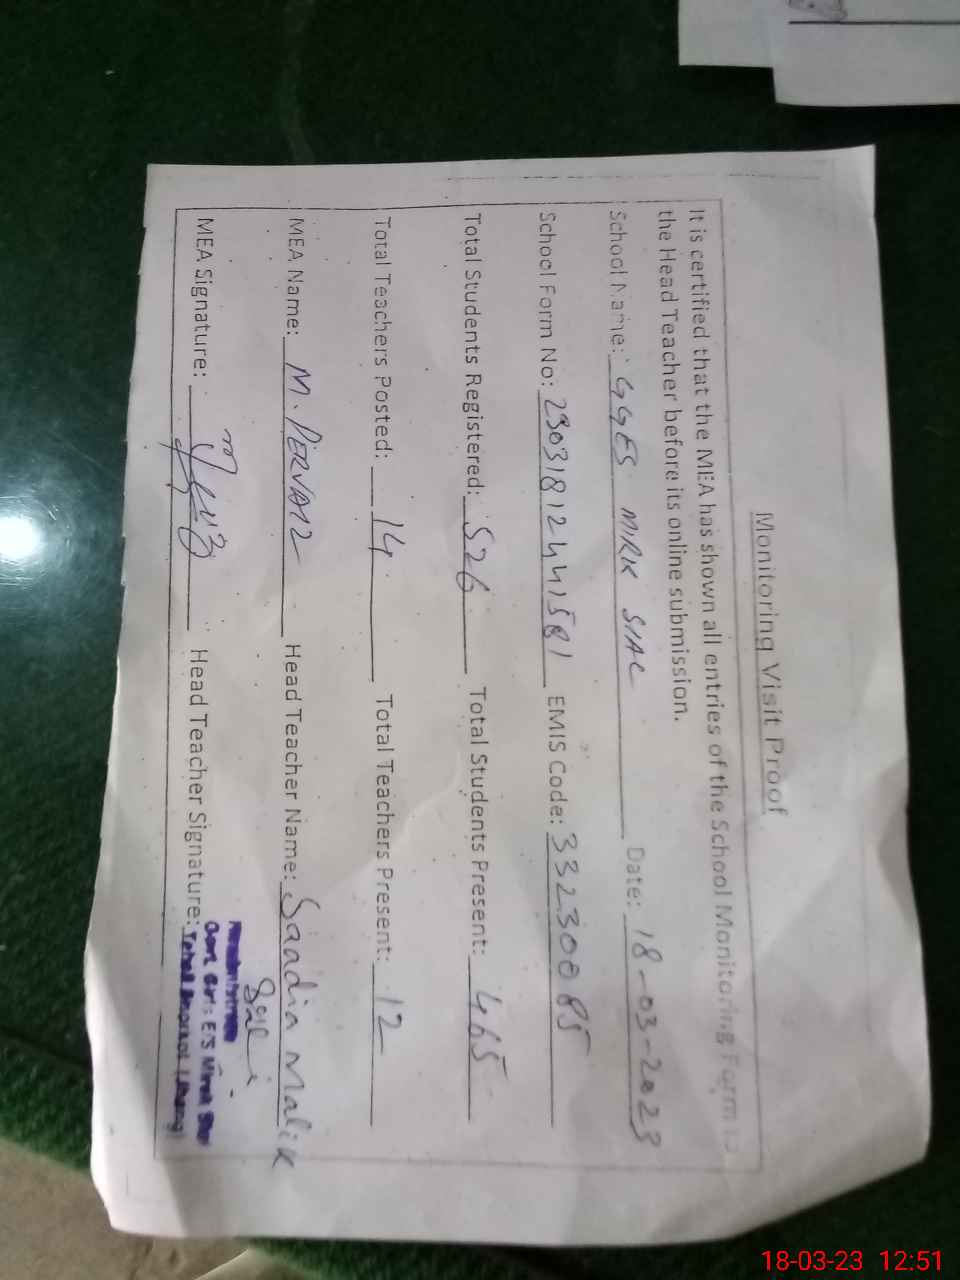 Monitoring Visit Proof
It is certified that the MEA has shown all entries of the School Monitoring Form to
the Head Teacher before its online submission.
School Name: GGES MIRK SIAL Date: 18-03-2023
School Form No: 23031812441581 EMIS Code: 33230085
Total Students Registered: 526 Total Students Present: 465
Total Teachers Posted: 14 Total Teachers Present: 12
MEA Name: M. PERVAIZ Head Teacher Name: Saadia Malik
MEA Signature: Head Teacher Signature:
Govt. Girls E/S Mirak Sial
18-03-23 12:51